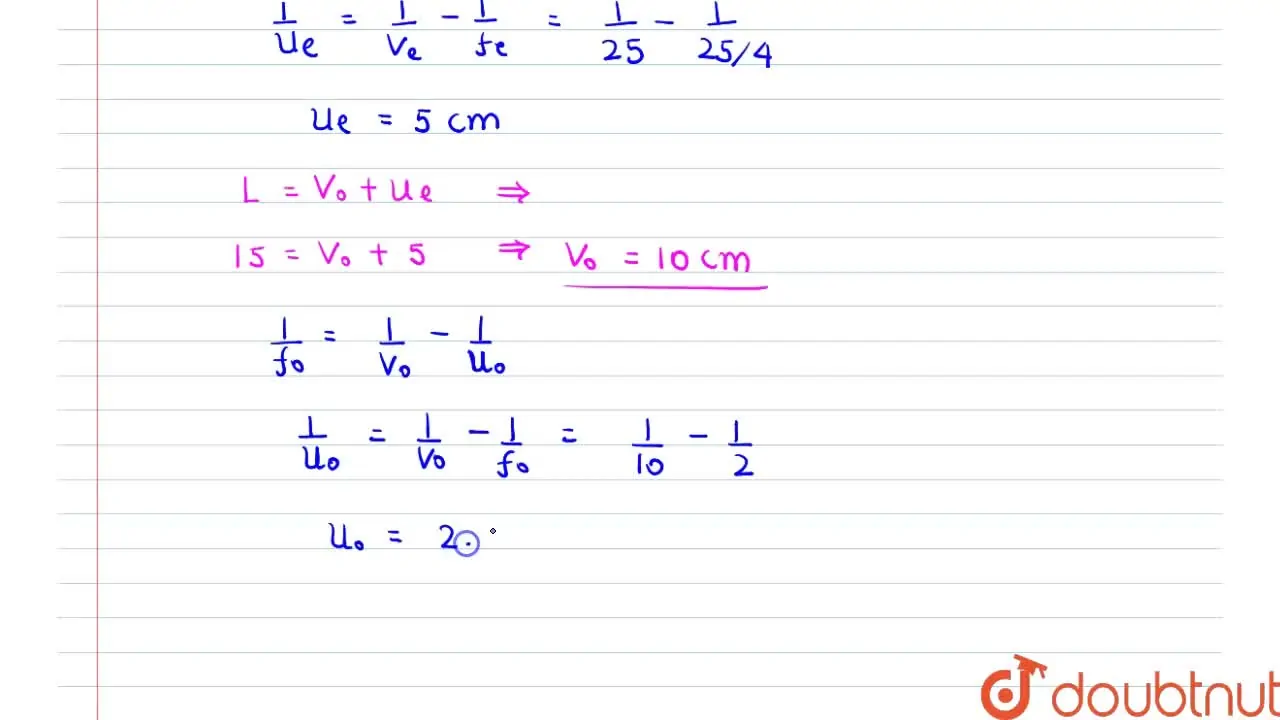 1/Ue = 1/Ve - 1/fe = 1/25 - 1/25/4
Ue = 5 cm
L = Vo + Ue ⇒
15 = Vo + 5 ⇒ Vo = 10 cm
1/fo = 1/Vo - 1/Uo
1/Uo = 1/Vo - 1/fo = 1/10 - 1/2
Uo = 2.
doubtnut